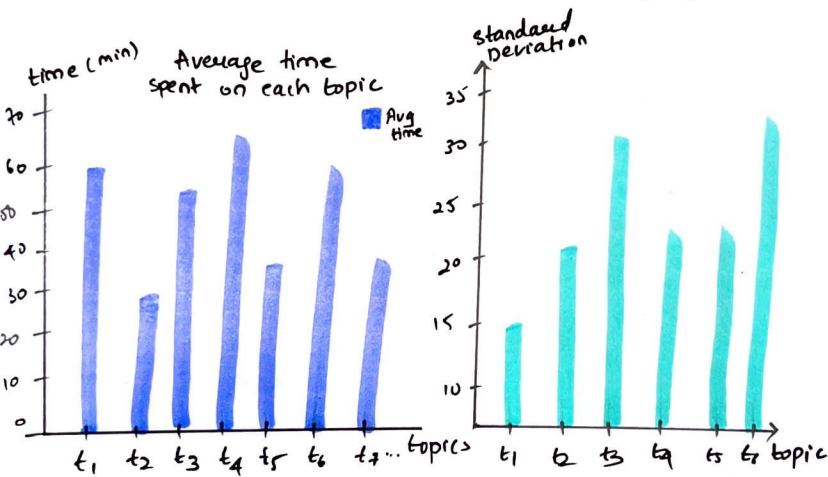 time (min)
Average time
spent on each topic
Avg
time
70
60
50
40
30
20
10
0
t1 t2 t3 t4 t5 t6 t7... topics
Standard
Deviation
35
30
25
20
15
10
t1 t2 t3 t4 t5 t7 topic